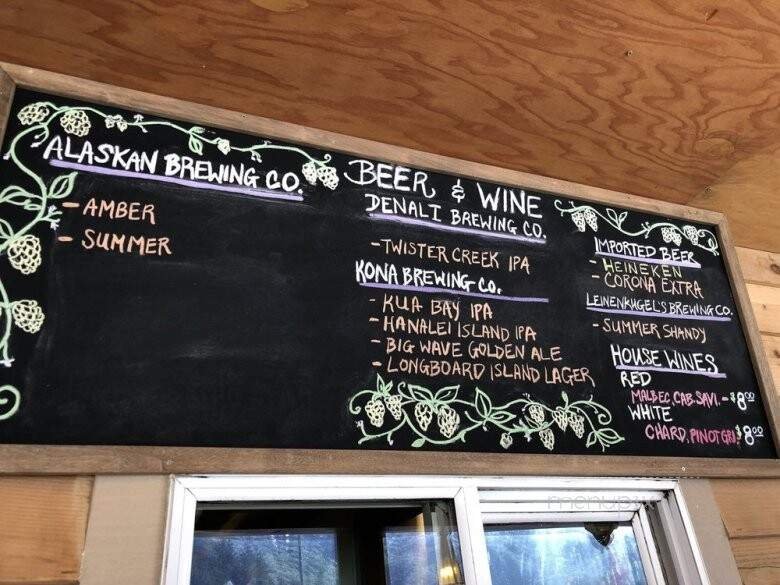 ALASKAN BREWING CO.
- AMBER
- SUMMER
BEER & WINE
DENALI BREWING CO.
- TWISTER CREEK IPA
KONA BREWING CO.
- KUA BAY IPA
- HANALEI ISLAND IPA
- BIG WAVE GOLDEN ALE
- LONGBOARD ISLAND LAGER
IMPORTED BEER
- HEINEKEN
- CORONA EXTRA
LEINENKUGEL'S BREWING CO.
- SUMMER SHANDY
HOUSE WINES
RED
MALBEC, CAB. SAVI. - $8.00
WHITE
CHARD, PINOT GRI $8.00